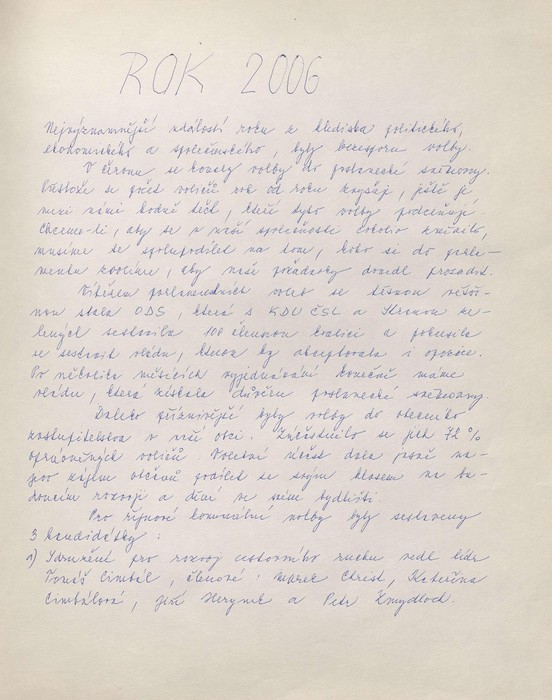 ROK 2006
Nejvýznamnější událostí roku z hlediska politického,
ekonomického a společenského, byly bezesporu volby.
V červnu se konaly volby do poslanecké sněmovny.
Přestože se počet voličů rok od roku zvyšuje, ještě je
mezi námi hodně těch, kteří tyto volby podceňují.
Chceme-li, aby se v naší společnosti cokoliv změnilo,
musíme se spolupodílet na tom, koho si do parla-
mentu zvolíme, aby naše požadavky dovedl prosadit.
Vítězem parlamentních voleb se těsnou větši-
nou stala ODS, která s KDU ČSL a Stranou ze-
lených sestavila 100 člennou koalici a pokusila
se sestavit vládu, kterou by akceptovala i opozice.
Po několika měsících vyjednávání konečně máme
vládu, která získala důvěru poslanecké sněmovny.
Daleko příznivější byly volby do obecního
zastupitelstva v naší obci. Zúčastnilo se jich 72 %
oprávněných voličů. Volební účast dala jasně na-
jevo zájem občanů podílet se svým hlasem na bu-
doucím rozvoji a dění ve svém bydlišti.
Pro říjnové komunální volby byly sestaveny
3 kandidátky:
1) Sdružení pro rozvoj cestovního ruchu vedl lídr
Tomáš Cimbál, členové: Marek Christ, Kateřina
Cimbálová, Jiří a Petr